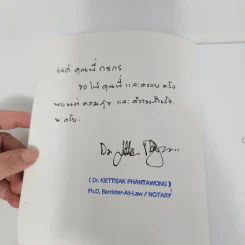 แด่ คุณพี่ กชกร
ขอให้ คุณพี่ และครอบครัว
พบแต่ ความสุข และ ความสำเร็จ
นะครับ.
Dr.
( Dr. KIETTISAK PHANTAWONG )
Ph.D, Barrister-At-Law / NOTARY